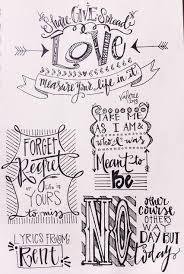 Share GIVE Spread
LOVE
measure your life in it
Valerie
FORGET
Regret
or
Life is
YOURS
to miss
TAKE ME
AS I AM &
who I was
Meant to
Be
LYRICS FROM:
Rent
NO
other
course
OTHERS
WAY
DAY BUT
today